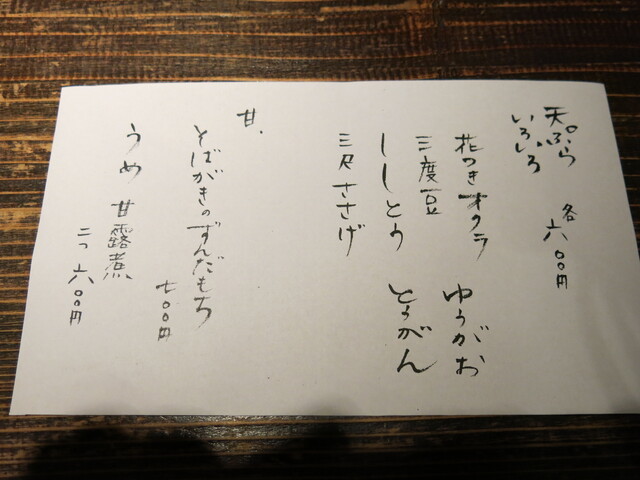 天ぷら
いろいろ
各六〇〇円
花つきオクラ
ゆうがお
三度豆
ししとう
とうがん
三尺ささげ
甘、
そばがきのずんだもち
七〇〇円
うめ甘露煮
二つ六〇〇円